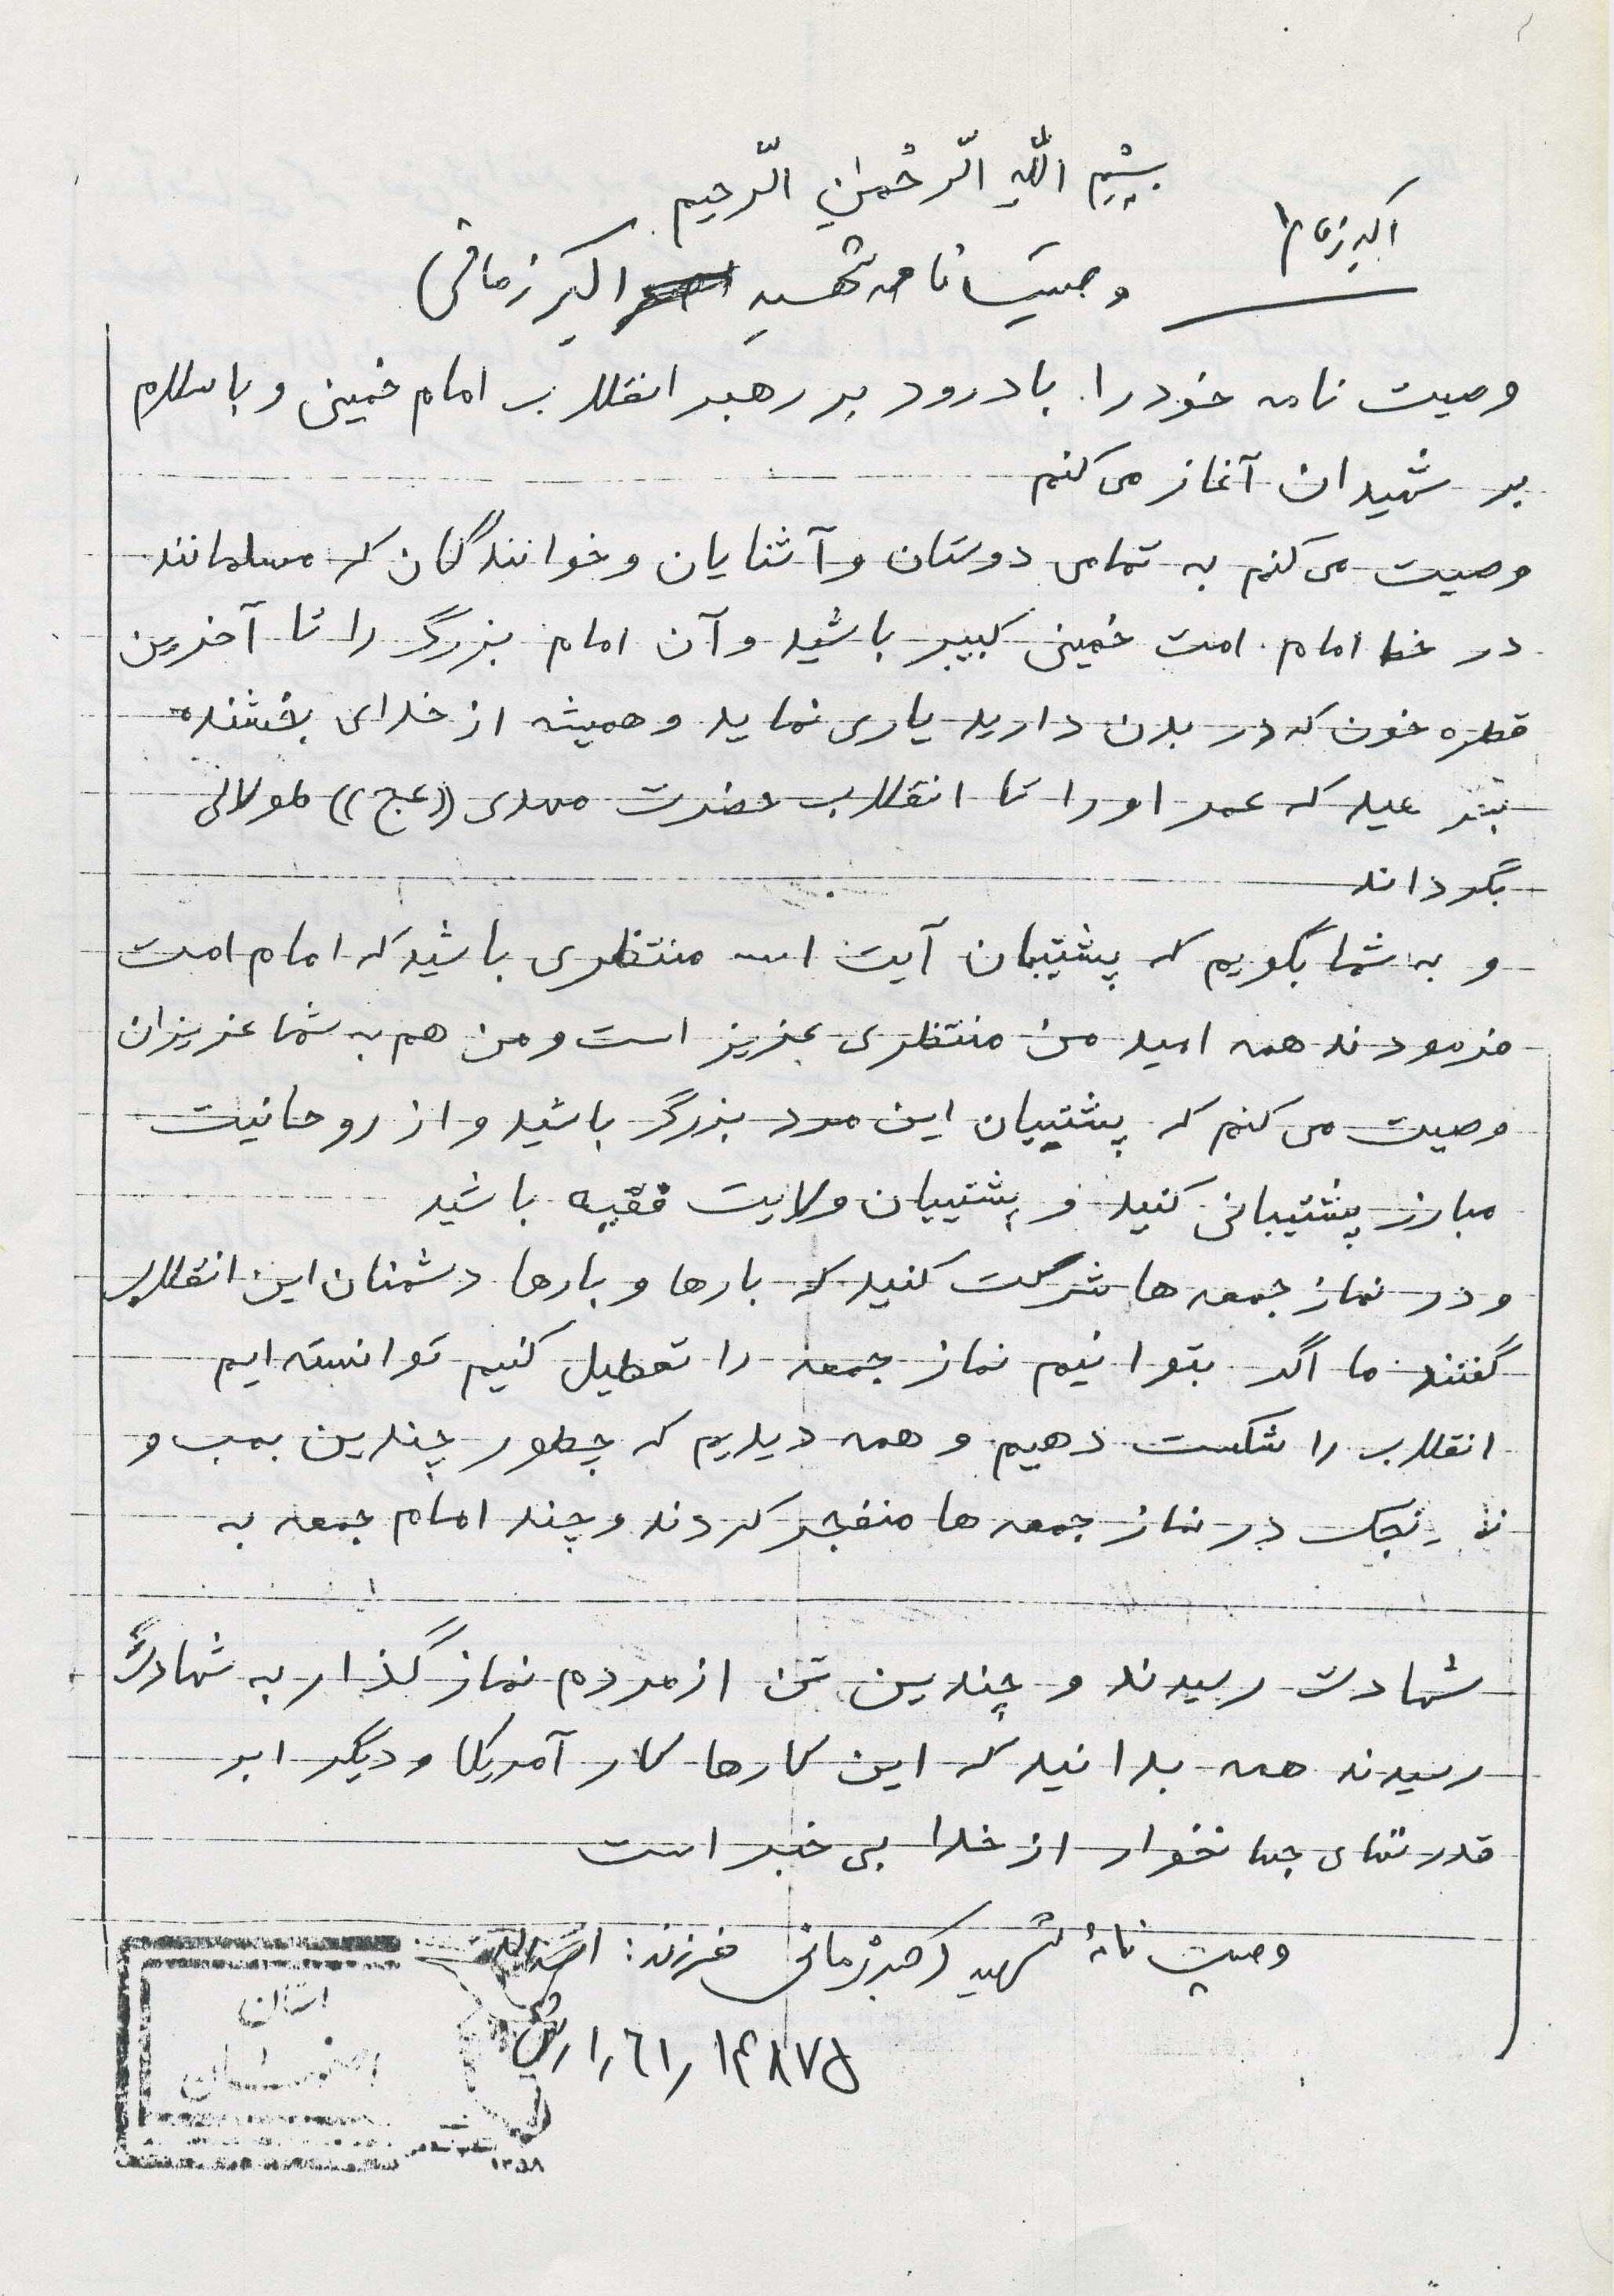 بِسْمِ اللّهِ الرّحْمنِ الرّحیم
اکبر زمانی
وصیت نامه شهید اکبر زمانی
وصیت نامه خود را با درود بر رهبر انقلاب امام خمینی و با سلام
بر شهیدان آغاز می کنم
وصیت می کنم به تمامی دوستان و آشنایان و خوانندگان که مسلمانند
در خط امام امت خمینی کبیر باشید و آن امام بزرگ را تا آخرین
قطره خون که در بدن دارید یاری نماید و همیشه از خدای بخشنده
که عمر او را تا انقلاب حضرت مهدی ((عج)) طولانی
بگرداند
و به شما بگویم که پشتیبان آیت اله منتظری باشید که امام امت
فرمودند همه امید من منتظری عزیز است و من هم به شما عزیزان
وصیت می کنم که پشتیبان این مرد بزرگ باشید و از روحانیت
مبارز پشتیبانی کنید و پشتیبان ولایت فقیه باشید
و در نماز جمعه ها شرکت کنید که بارها و بارها دشمنان این انقلاب
گفتند ما اگر بتوانیم نماز جمعه را تعطیل کنیم توانسته ایم
انقلاب را شکست دهیم و همه دیدیم که چطور چندین بمب و
در نماز جمعه ها منفجر کردند و چند امام جمعه به
شهادت رسیدند و چندین تن از مردم نماز گذار به شهادت
رسیدند همه بدانید که این کارها کار آمریکا و دیگر ابر
قدرتهای جهانخوار از خدا بی خبر است
وصیت نامهٔ شهید اکبر زمانی فرزند:
استان
۱۳۵۸